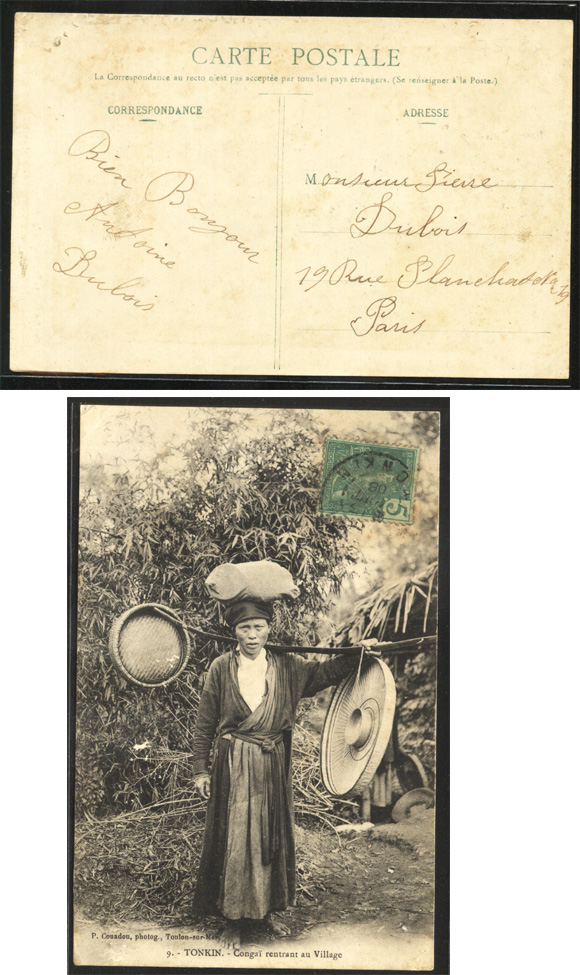 CARTE POSTALE
La Correspondance au recto n'est pas acceptée par tous les pays étrangers. (Se renseigner à la Poste.)
CORRESPONDANCE
Bien Bonjour
Antoine
Dubois
ADRESSE
Monsieur Pierre
Dubois
19 Rue Planchat No 19
Paris
TONKIN
5
P. Couadou, photog., Toulon-sur-Mer
9. - TONKIN. - Congaï rentrant au Village